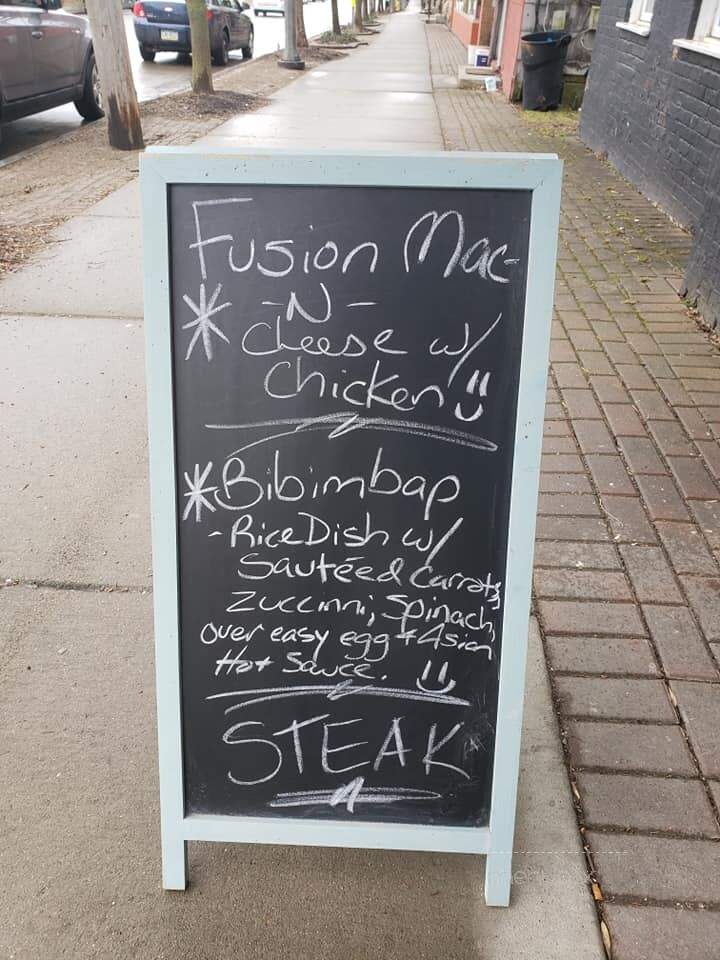 Fusion Mac-
-N-
* Cheese w/
Chicken
*Bibimbap
-Rice Dish w/
Sautéed Carrots,
Zuccinni, Spinach,
over easy egg + Asian
Hot Sauce.
STEAK